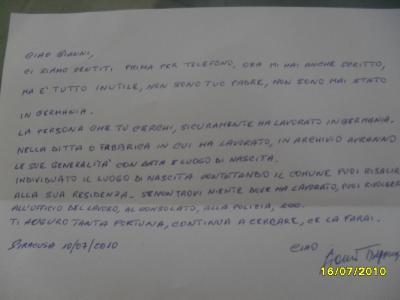 CIAO GIANNI,
CI SIAMO SENTITI PRIMA PER TELEFONO, ORA MI HAI ANCHE SCRITTO,
MA E' TUTTO INUTILE, NON SONO TUO PADRE, NON SONO MAI STATO
IN GERMANIA.
LA PERSONA CHE TU CERCHI, SICURAMENTE HA LAVORATO IN GERMANIA.
NELLA DITTA O FABBRICA IN CUI HA LAVORATO, IN ARCHIVIO AVRANNO
LE SUE GENERALITA' CON DATA E LUOGO DI NASCITA.
INDIVIDUATO IL LUOGO DI NASCITA CONTATTANDO IL COMUNE PUOI RISALIRE
ALLA SUA RESIDENZA. SE NON TROVI NIENTE DOVE HA LAVORATO, PUOI RIVOLGERTI
ALL'UFFICIO DEL LAVORO, AL CONSOLATO, ALLA POLIZIA, ECC.
TI AUGURO TANTA FORTUNA, CONTINUA A CERCARE, CE LA FARAI.
SIRACUSA 10/07/2010 CIAO
16/07/2010